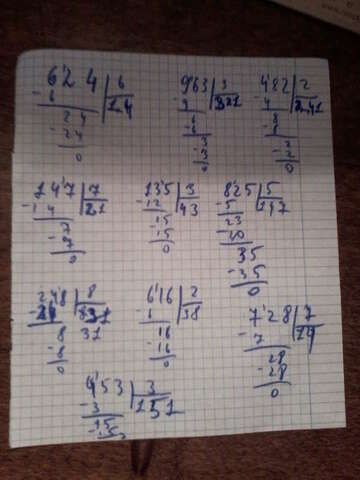 624 6 963 3 482 2
- 6 14 - 9 321 - 4 241
24 6 8
- 24 - 6 - 8
0 3 2
- 3 - 2
0 0
147 7 135 3 825 5
- 14 21 - 12 43 - 5 117
7 15 23
- 7 - 15
0 0 35
- 35
0
248 8 616 2 728 7
31 - 6 38 - 7 14
8 31 16 28
- 8 - 16 - 28
0 0 0
453 3
- 3 151
15